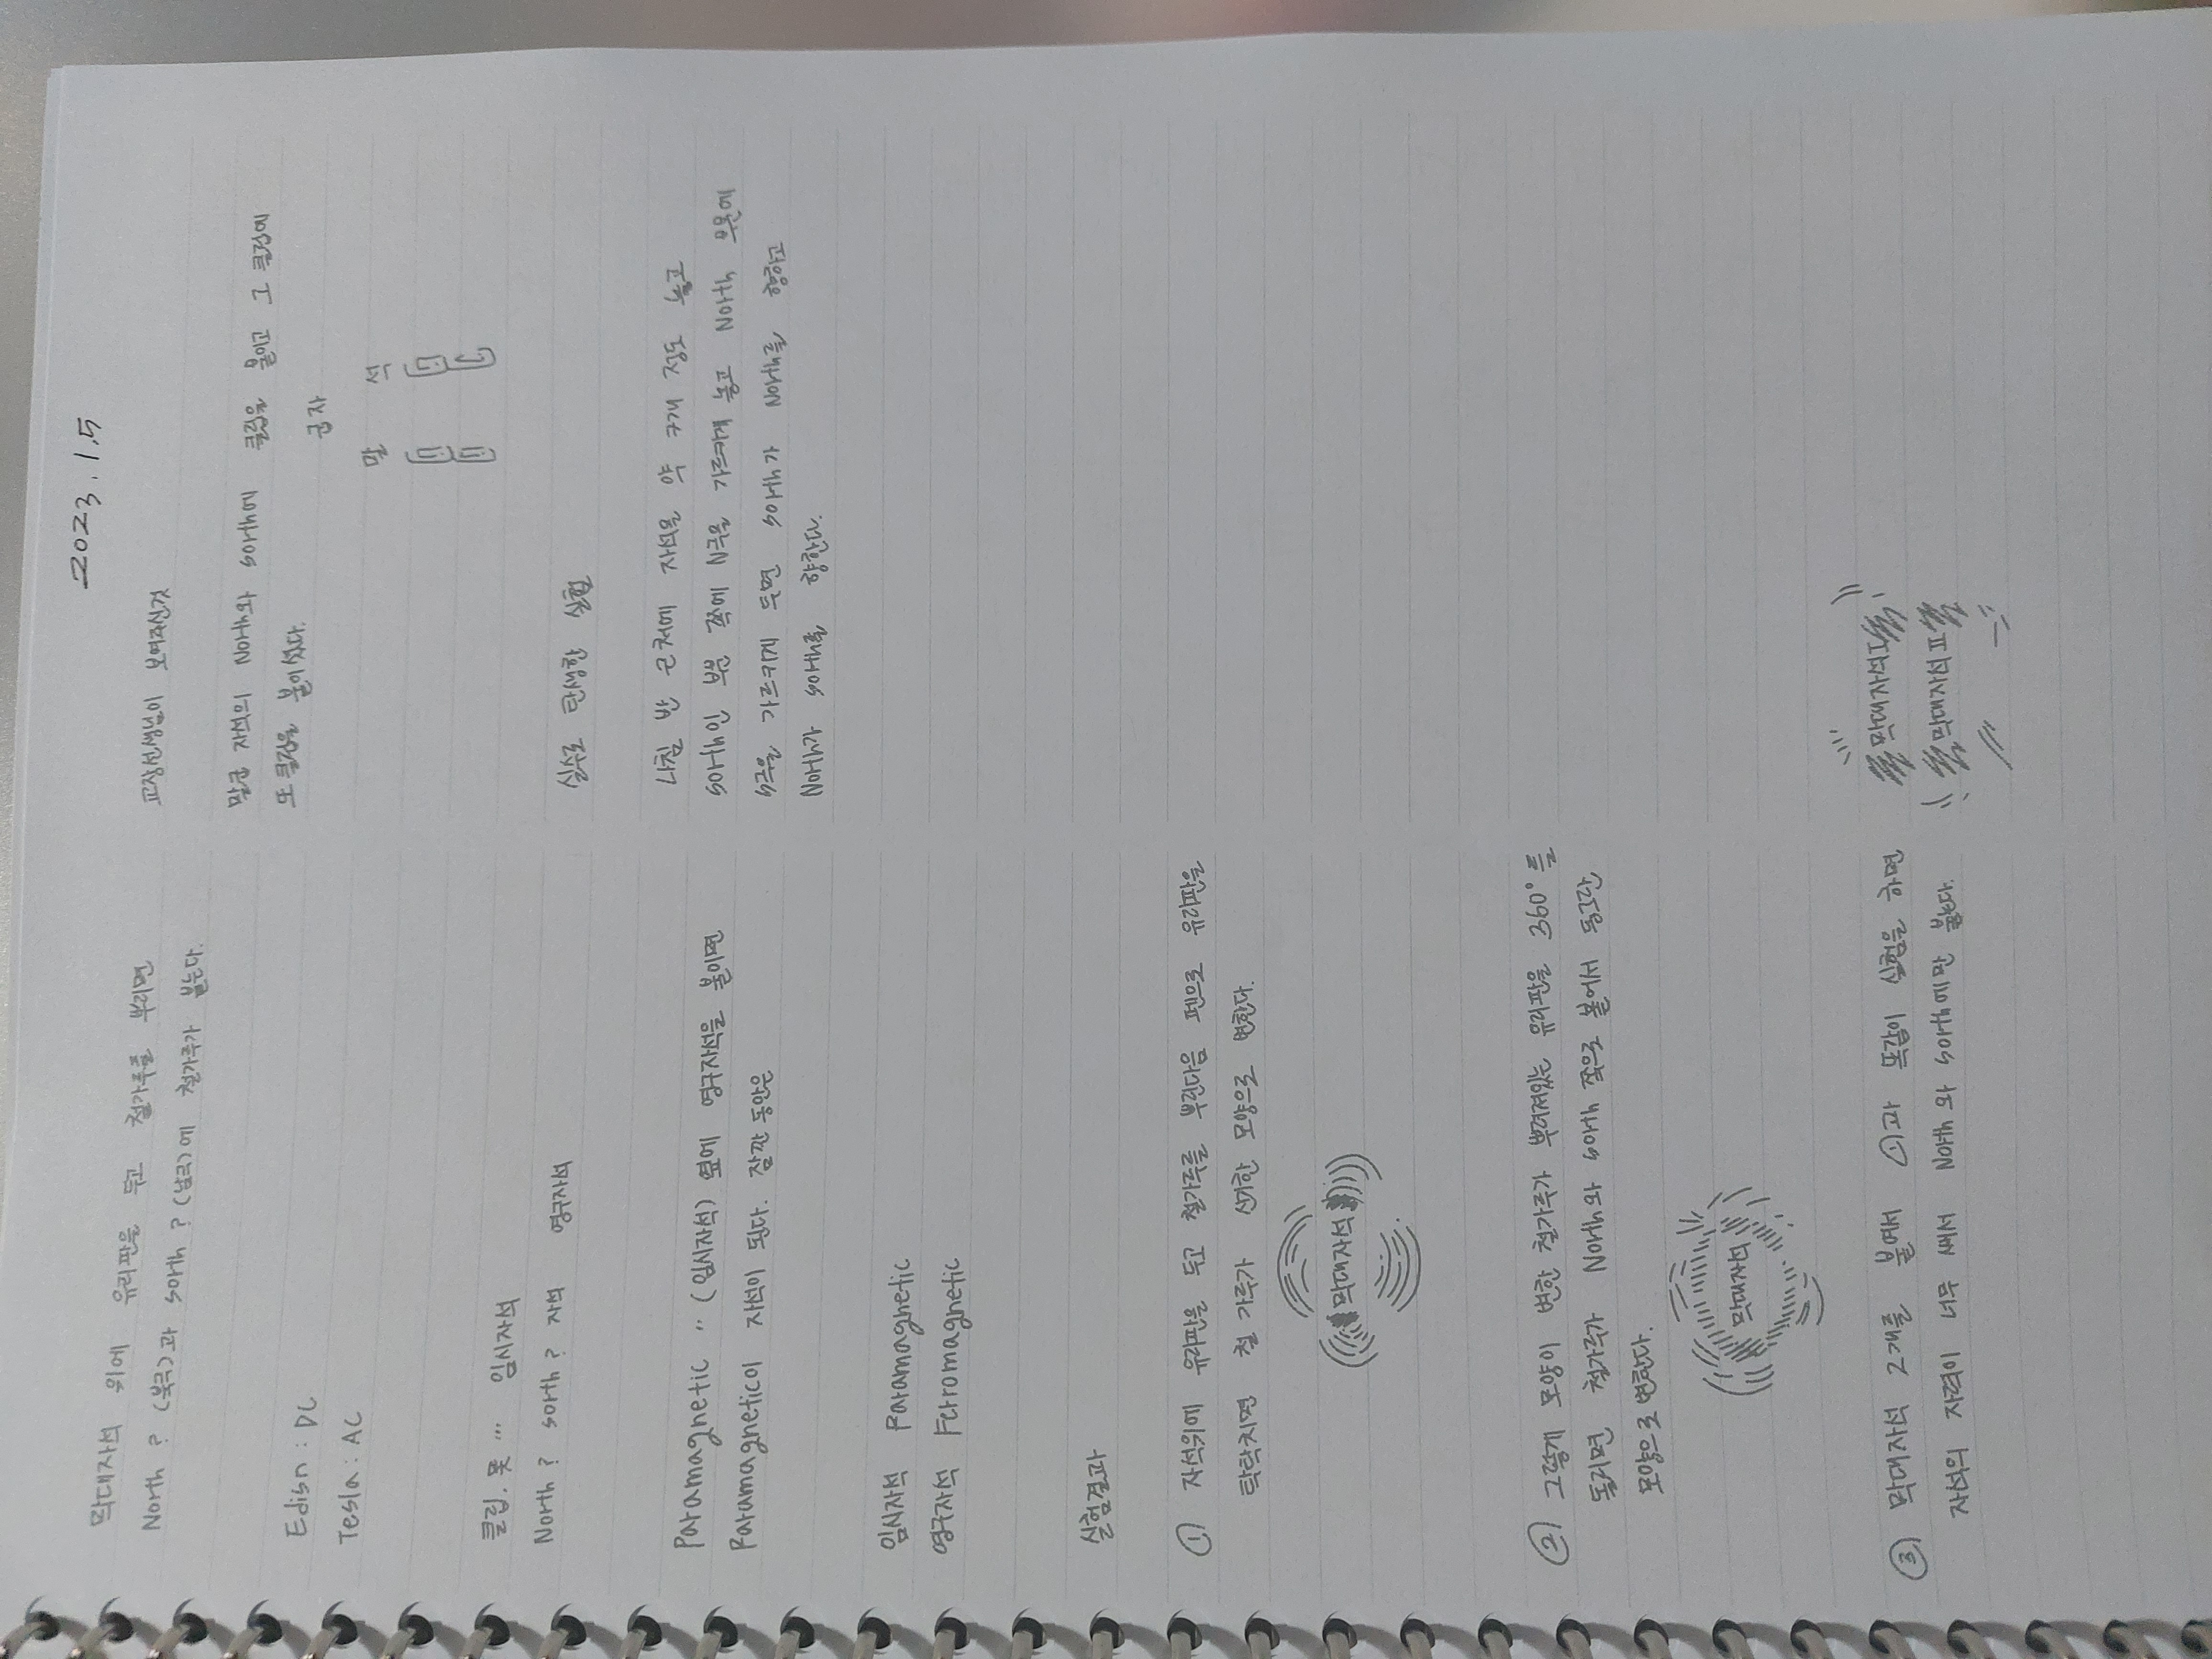 2023. 1.5
막대자석 위에 유리판을 두고 철가루를 뿌리면
North ? (북극)과 sorth ? (남극)에 철가루가 붙는다.
Edisn : DC
Tesla : AC
클립. 못 … 임시자석
North ? sorth ? 자석 영구자석
Paramagnetic " (임시자석) 옆에 영구자석을 붙이면
Paramagnetic이 자석이 된다. 잠깐 동안은
임시자석 Paramagnetic
영구자석 Ferromagnetic
실험결과
① 자석위에 유리판을 두고 철가루를 뿌린다음 펜으로 유리판을
탁탁치면 철 가루가 신기한 모양으로 변한다.
막대자석
② 그렇게 모양이 변한 철가루가 뿌려져있는 유리판을 360° 를
돌리면 철가루가 North와 sorth 쪽으로 붙어서 동그란
모양으로 변한다.
막대자석
③ 막대자석 2개를 붙여서 ①과 똑같이 실험을 하면
자석의 자력이 너무 쎄서 North 와 sorth에만 붙는다.
교장선생님이 보여주신것
말굽 자석의 North와 sorth에 클립을 붙이고 그 클립에
또 클립을 붙이셨다.
굽자
말 석
실수로 탄생한 실험
나침 반 근처에 자석을 약 7개 정도 놓고
sorth인 부분 쪽에 N극을 가르키게 놓고 North 부분에
S극을 가르키게 두면 sorth가 North를 향하고
North가 sorth를 향한다.
막대자석
막대자석